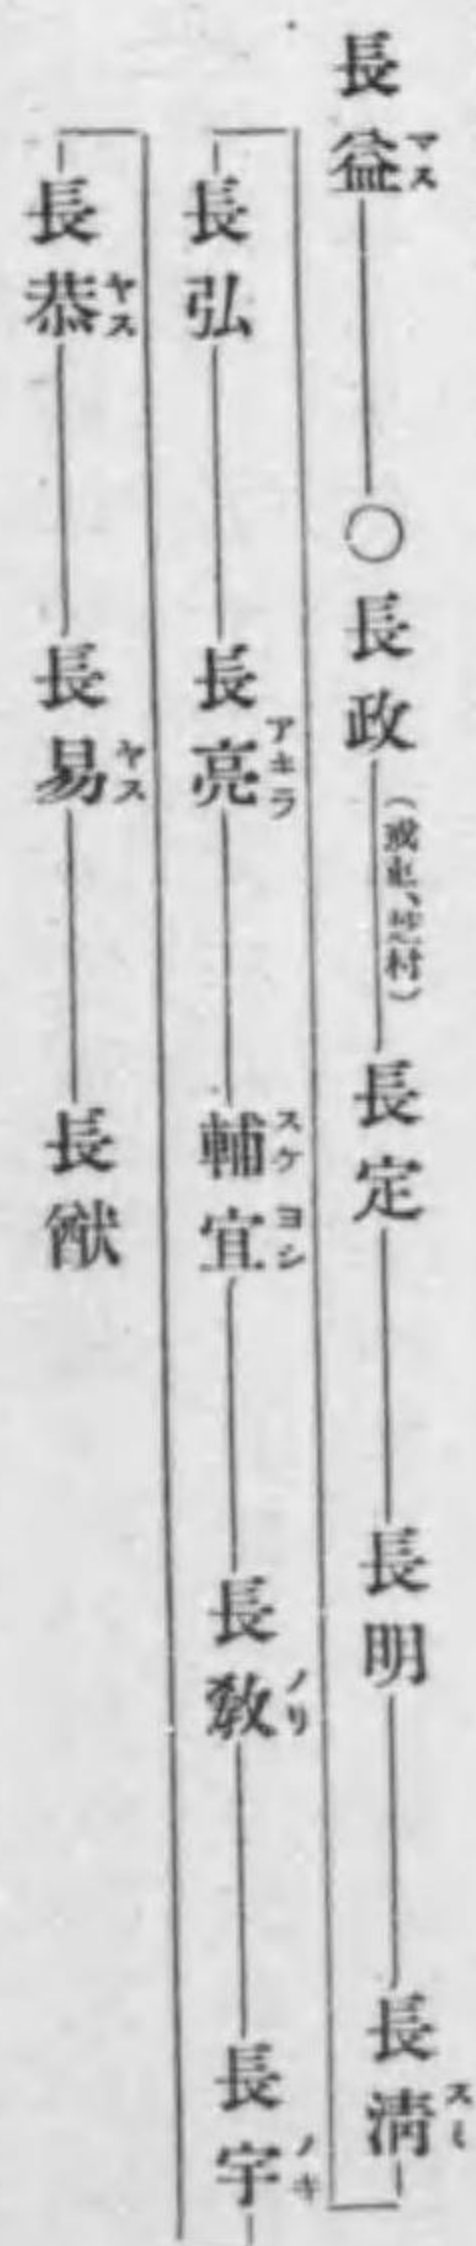 長益マス―○長政(或正、)―長定―長明―長清スミ
長弘―長亮アキラ―輔宜スケヨシ―長教ノリ―長宇ノキ
長恭ヤス―長易ヤス―長猷